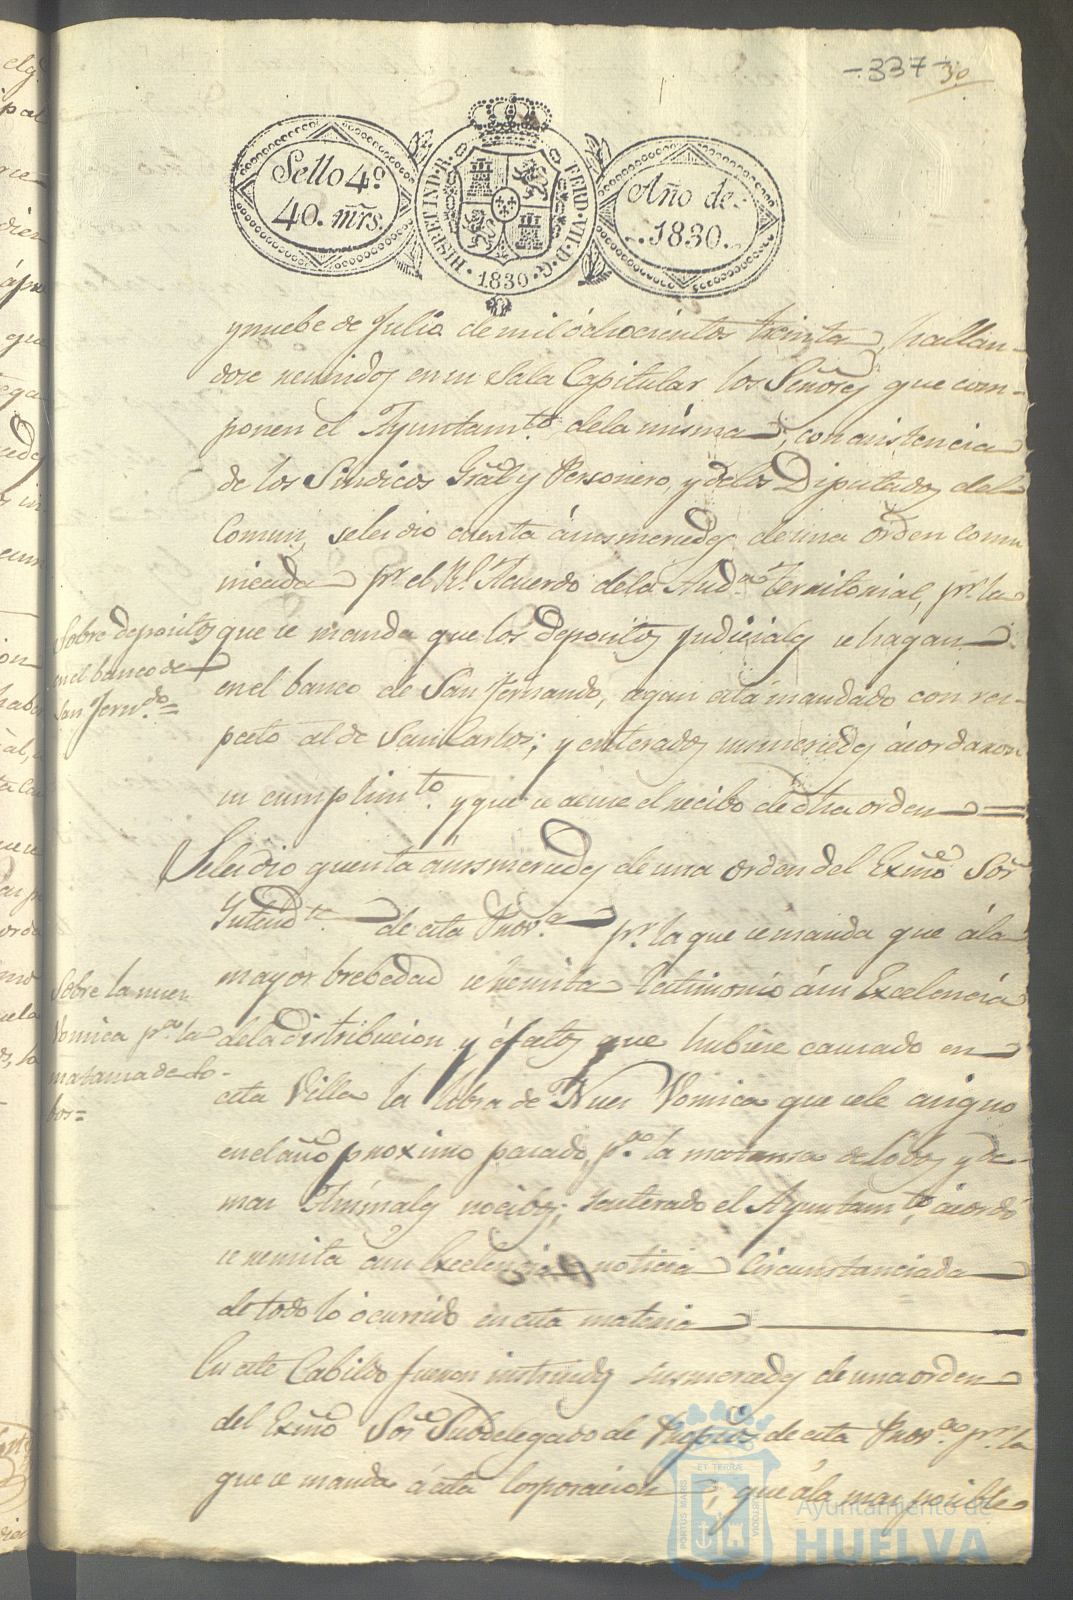 -337-
30
Sello 4º
40. mrs.
HISP. ET IND. R.
FERD. VII. D. G.
1830
Año de
1830.
y nuebe de Julio de mil ochocientos treinta, hallan-
dose reunidos en su Sala Capitular los Señores que com-
ponen el Ayuntamto. dela misma, con asistencia
de los Sindicos Gral y Personero, y delos Diputados del
Comun, seles dio cuenta á sus mercedes de una orden comu
nicada pr. el Rl. Acuerdo dela Auda. territorial, pr. la
Sobre depositos
en el banco de
San Ferndo.=
que se manda que los depositos judiciales se hagan
en el banco de San Fernando, segun está mandado con res-
pecto al de San Carlos; y enterados sus mercedes acordaron
su cumplimto. y que se acuse el recibo de dha orden =
Seles dio quenta a sus mercedes de una orden del Exmo Sor
Intendte. de esta Prova. pr. la que se manda que á la
mayor brebedad se remita testimonio á su Excelencia
Sobre la nuez
Vomica pa. la
matansa de Lo-
bos=
dela distribucion y éfectos que hubiese causado en
esta Villa la libra de Nuez Vomica que sele asigno
en el año proximo pasado, pa. la matansa de Lobos y de
mas Animales nocibos; y enterado el Ayuntamto. acordó
se remita a su Excelencia noticia circunstanciada
de todo lo ocurrido en esta materia
En este Cabildo fueron instruidos sus mercedes de una orden
del Exmo Sor Subdelegado de Propios de esta Prova. pr. la
que se manda á esta Corporacion que á la mas posible
PORTUS MARIS
ET TERRÆ
CUSTODIA
Ayuntamiento de
HUELVA